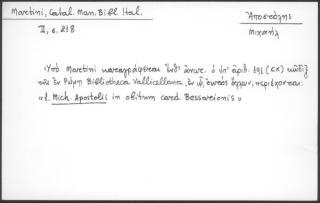 Martini, Catal. Man. Bibl. Ital.
Ἀποστόλης
II, σ. 218
Μιχαήλ
«Ὑπὸ Martini καταγράφεται ἔνθ' ἀνωτ. ὁ ὑπ' ἀριθ. (CX) κῶδιξ
τῆς ἐν Ρώμῃ Bibliotheca Vallicellana, ἐν ᾧ, ἐντὸς ἄλλων, περιέχονται:
«1. Mich. Apostolii in obitum card. Bessarionis.»